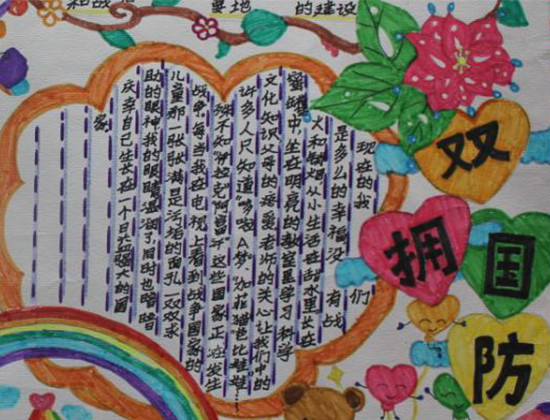 和战
要地
的建设
双
拥
国
防
现在的我们
是多么的幸福没有战
火和硝烟从小生活在甜水里长在
蜜罐中坐在明亮的教室里学习科学
文化知识父母的疼爱老师的关心让我们中的
许多人只知道“哆啦A梦”“加菲猫”“芭比娃娃”……
殊不知“伊拉克”“阿富汗”这些国家正在发生
战争每当我在电视上看到战争国家的
儿童那一张张满是污垢的面孔一双双求
助的眼神我的眼睛湿润了同时也暗暗
庆幸自己生长在一个日益强大的国
家